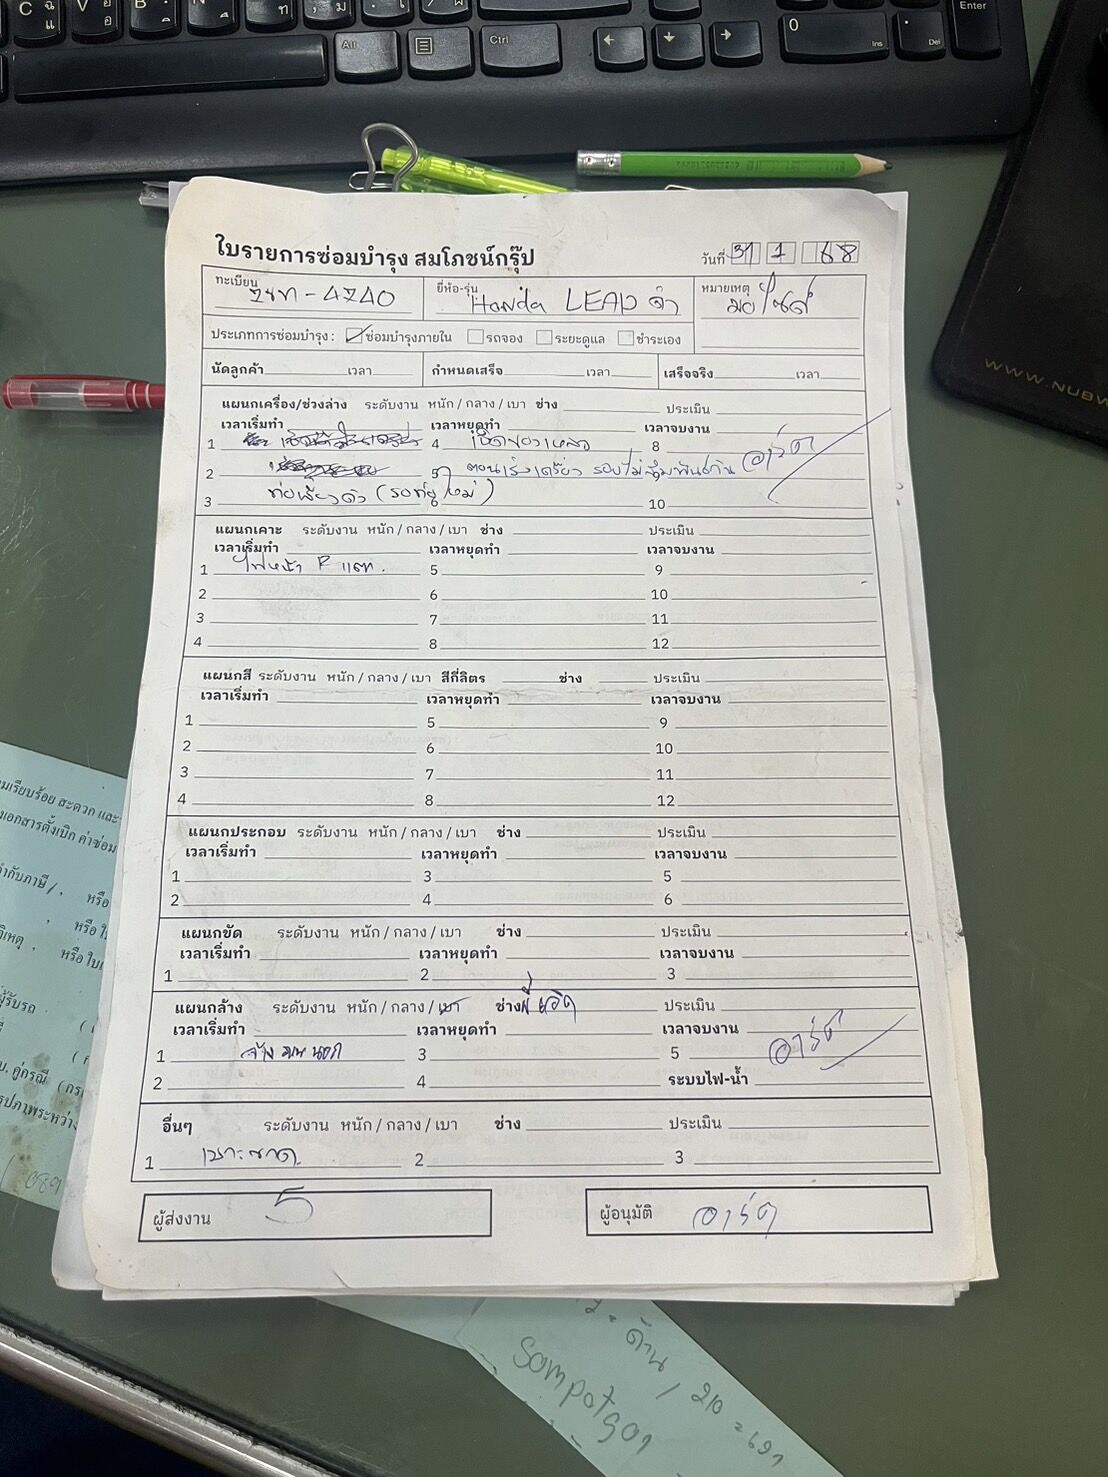 ใบรายการซ่อมบำรุง สมโภชน์กรุ๊ป
วันที่ 31 1 68
ทะเบียน -4240
ยี่ห้อ-รุ่น Honda LEAD ดำ
หมายเหตุ มอไซต์
ประเภทการซ่อมบำรุง : ซ่อมบำรุงภายใน รถจอง ระยะดูแล ชำระเอง
นัดลูกค้า เวลา กำหนดเสร็จ เวลา เสร็จจริง เวลา
แผนกเครื่อง/ช่วงล่าง ระดับงาน หนัก / กลาง / เบา ช่าง ประเมิน
เวลาเริ่มทำ เวลาหยุดทำ เวลาจบงาน
1 4 8
2 5 ตอนเร่งเครื่อง รอบไม่สัมพันธ์กัน อาร์ต
3 ท่อเขียวดำ (รอท่อใหม่) 10
แผนกเคาะ ระดับงาน หนัก / กลาง / เบา ช่าง ประเมิน
เวลาเริ่มทำ เวลาหยุดทำ เวลาจบงาน
1 ไฟหน้า R แตก. 5 9
2 6 10
3 7 11
4 8 12
แผนกสี ระดับงาน หนัก / กลาง / เบา สีกี่ลิตร ช่าง ประเมิน
เวลาเริ่มทำ เวลาหยุดทำ เวลาจบงาน
1 5 9
2 6 10
3 7 11
4 8 12
แผนกประกอบ ระดับงาน หนัก / กลาง / เบา ช่าง ประเมิน
เวลาเริ่มทำ เวลาหยุดทำ เวลาจบงาน
1 3 5
2 4 6
แผนกขัด ระดับงาน หนัก / กลาง / เบา ช่าง ประเมิน
เวลาเริ่มทำ เวลาหยุดทำ เวลาจบงาน
1 2 3
แผนกล้าง ระดับงาน หนัก / กลาง / เบา ช่าง พี่ ประเมิน
เวลาเริ่มทำ เวลาหยุดทำ เวลาจบงาน
1 3 5 อาร์ต
2 4 ระบบไฟ-น้ำ
อื่นๆ ระดับงาน หนัก / กลาง / เบา ช่าง ประเมิน
1 เบาะขาด 2 3
ผู้ส่งงาน 5
ผู้อนุมัติ อาร์ต
WWW.NUBW
Enter
Alt
Ctrl
0
Ins
Del
หรือ
หรือใบ
ผู้รับรถ
บ. คู่กรณี
รูปภาพระหว่าง
089
ด้าน / 210
Sompotgor